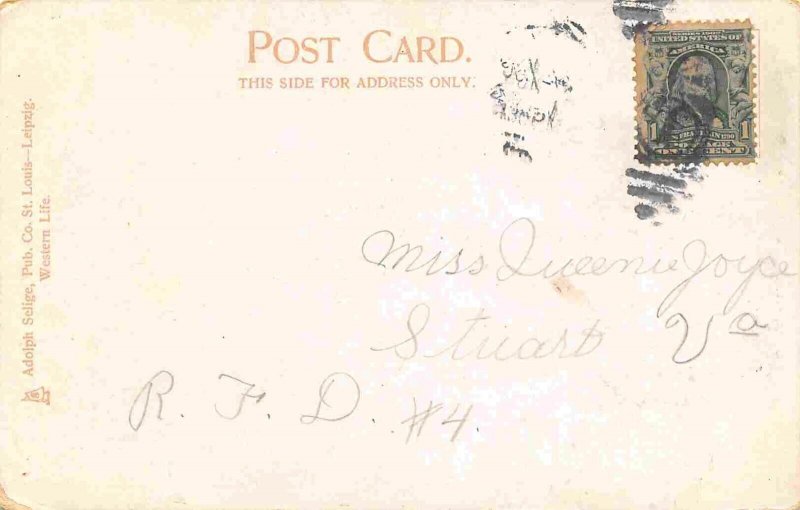 POST CARD.
THIS SIDE FOR ADDRESS ONLY.
SERIES 1902
UNITED STATES OF
AMERICA
1 1
FRANKLIN
POSTAGE
ONE CENT
Adolph Selige, Pub. Co. St. Louis—Leipzig.
Western Life.
Miss Queenie Joyce
Stuart Va
R. F. D. #4